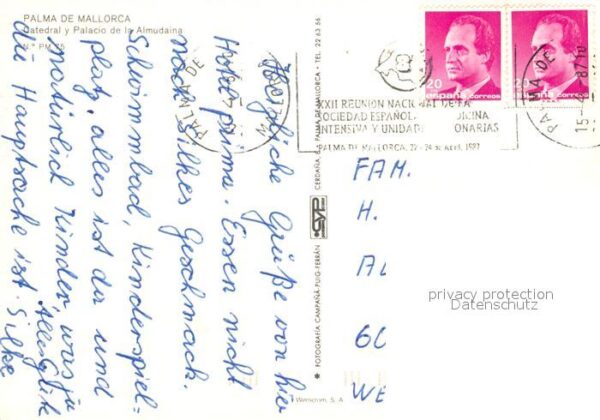 PALMA DE MALLORCA
Catedral y Palacio de la Almudaina
N.° PM. 75
Herzliche Grüße von hier
Hotel prima. Essen nicht
nach Silkes Geschmack.
Schwimmbad, Kinderspiel=
platz, alles ist da und
natürlich Kinder, was ja
die Hauptsache ist.
Alles Gute
Silke
CERDAÑA, 6 - PALMA DE MALLORCA - TEL. 22 63 56
CYP
FOTOGRAFIA CAMPAÑÁ-PUIG-FERRÁN
PALMA DE
20
españa correos
20
españa correos
XXII REUNION NACIONAL DE LA
SOCIEDAD ESPAÑOL MEDICINA
INTENSIVA Y UNIDADES ONARIAS
PALMA DE MALLORCA, 22-24 DE ABRIL 1987
PALMA DE
15-
87
FAM.
H.
privacy protection
Datenschutz
60
WE